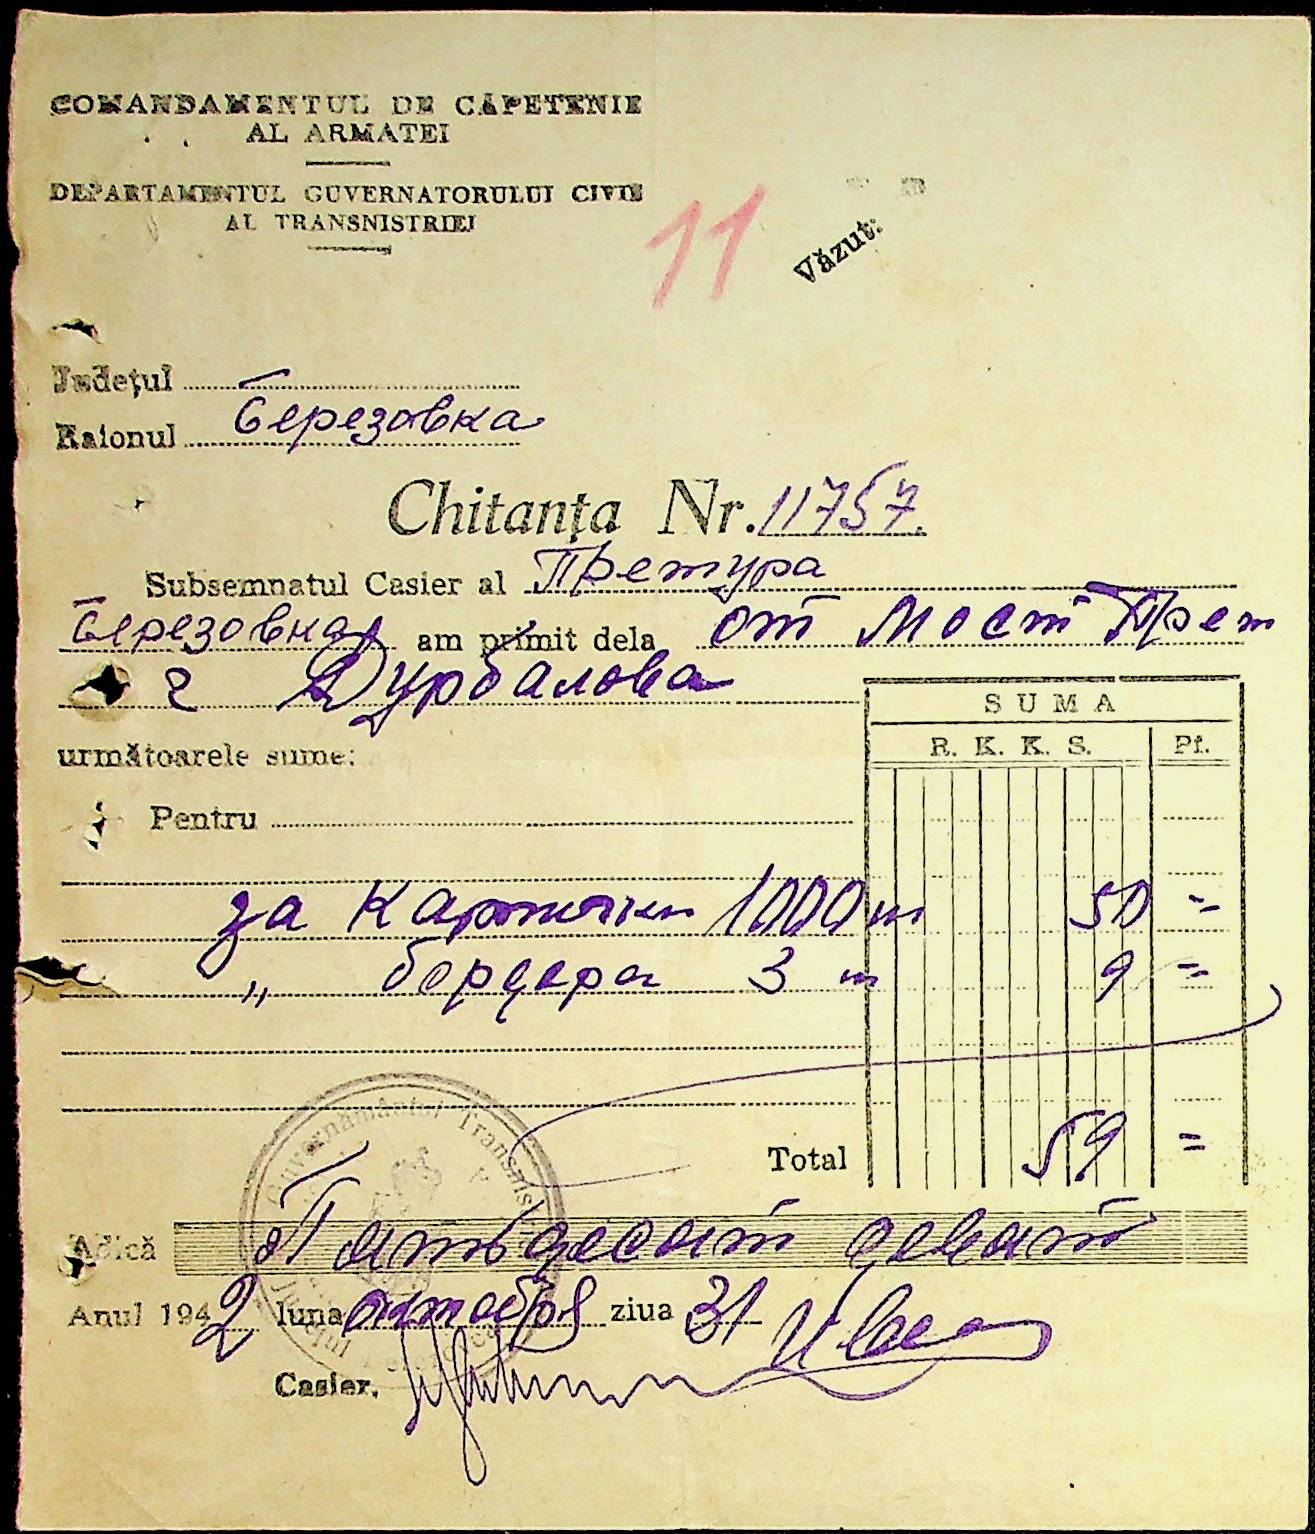 COMANDAMENTUL DE CĂPETENIE
AL ARMATEI
DEPARTAMENTUL GUVERNATORULUI CIVIL
AL TRANSNISTRIEI
11
Văzut:
Județul
Raionul Березовка
Chitanța Nr. 11757.
Subsemnatul Casier al Претура
Березовка am primit dela от Мост Прет
г Дурбалова
următoarele sume:
SUMA
R. K. K. S. Pf.
Pentru
за Карточки 1000 ш 50 =
„ бордера 3 ш 9 =
Total 59 =
Guvernământul Transnist
Adică Пятьдесят девят
Anul 1942 luna октября ziua 31
Casier,